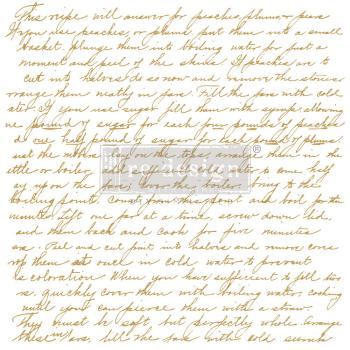 This recipe will answer for peaches, plums & pears
If you use peaches or plums put them into a small
basket. plunge them into boiling water for just a
moment and peel of the skins If peaches are to
cut into halves do so now and remove the stones
arrange them neatly in jars. Fill the jars with cold
ater If you use sugar fill them with syrup. allowing
ne pound of sugar for each four pounds of peaches
d one half pound of sugar for each pound of plums
ust the rubbers lay on the tops arrange them in the
ettle or boiler, add sufficient water to come half
ay up on the jars, Cover the boiler, bring to the
boiling point. Count from this point and boil for ten
minutes. Lift one jar at a time, screw down lid.
and them back and cook for five minutes
ars. Peel and cut fruit into halves and remove cores
rop them at once in cold water to prevent
is coloration When you have sufficient to fill two
rs. quickly cover them with boiling water, cooking
until you can pierce them with a straw.
They must be soft but perfectly whole. Arrange
these in jars, fill the jars with cold
re·design
®